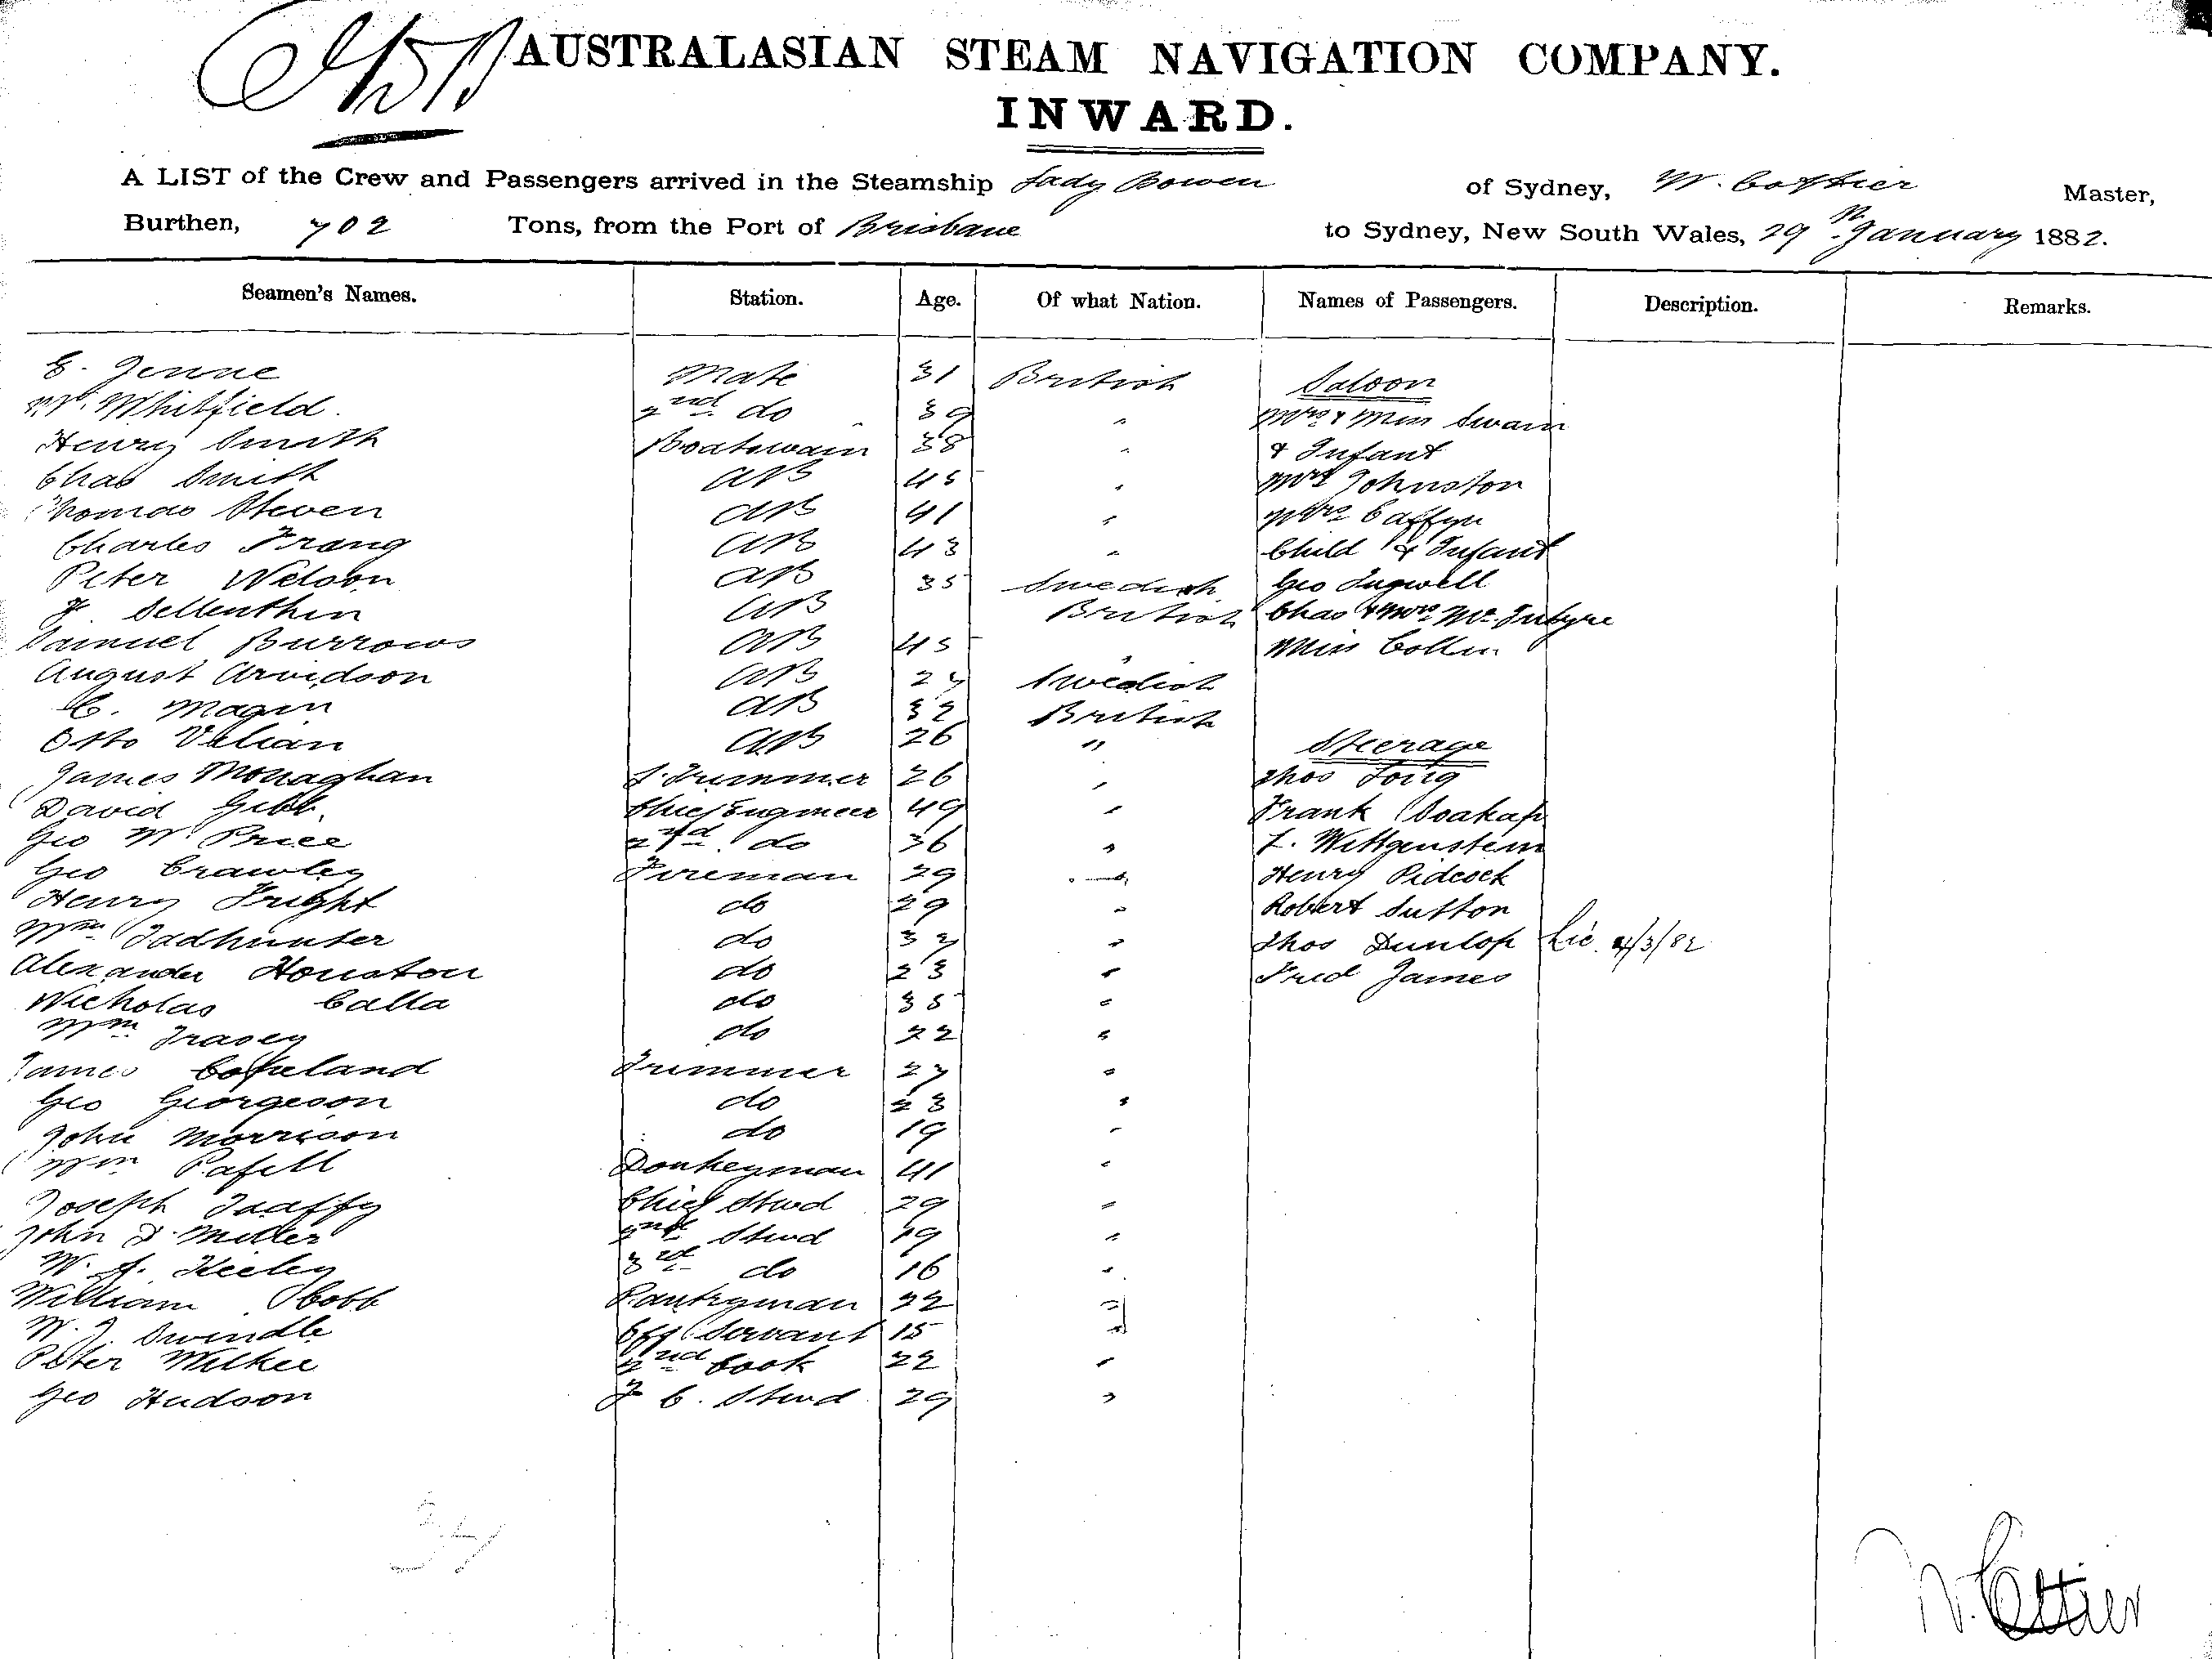 AUSTRALASIAN STEAM NAVIGATION COMPANY.
INWARD.
A LIST of the Crew and Passengers arrived in the Steamship Lady Bowen of Sydney, W. Cottier Master,
Burthen, 702 Tons, from the Port of Brisbane to Sydney, New South Wales, 29th January 1882.
Seamen's Names. Station. Age. Of what Nation. Names of Passengers. Description. Remarks.
Mate 31 British Saloon
Whitfield. 2nd do 39 " Mrs & Miss Swain
Henry Smith Boatswain 38 " & Infant
Chas Smith AB 45 " Mrs Johnston
Thomas Steven AB 41 " Mrs Caffyn
Charles AB 43 " Child & Infant
Peter Nelson AB 35 Swedish Geo
F. Sellenthin AB British Chas & Mrs McIntyre
Samuel Burrows AB 45 " Miss
August Arvidson AB 27 Swedish
C. Magin AB 32 British
Otto AB 26 " Steerage
James Monaghan Trimmer 26 " Thos
David Gibb. Chief Engineer 49 " Frank
Geo W. Price 2nd do 36 " L. Wittgenstein
Geo Crawley Fireman 29 " Henry Pidcock
Henry Fright do 29 " Robert Sutton
Wm Tadhunter do 37 " Thos Dunlop Lic. 4/3/82
Alexander Houston do 23 " Fred James
Nicholas Calla do 35 "
Wm Tracey do 22 "
James Copeland Trimmer 27 "
Geo Georgeson do 23 "
John Morrison do 19 "
Wm Donkeyman 41 "
Joseph Taaffy Chief Stwd 29 "
John D. Miller 2nd Stwd 19 "
W. A. Keeley 3rd do 16 "
William Cobb Pantryman 22 "
W. J. Swindle Servant 15 "
Peter Wilkie 2nd Cook 22 "
Geo Hudson F. C. Stwd 29 "
W. Cottier